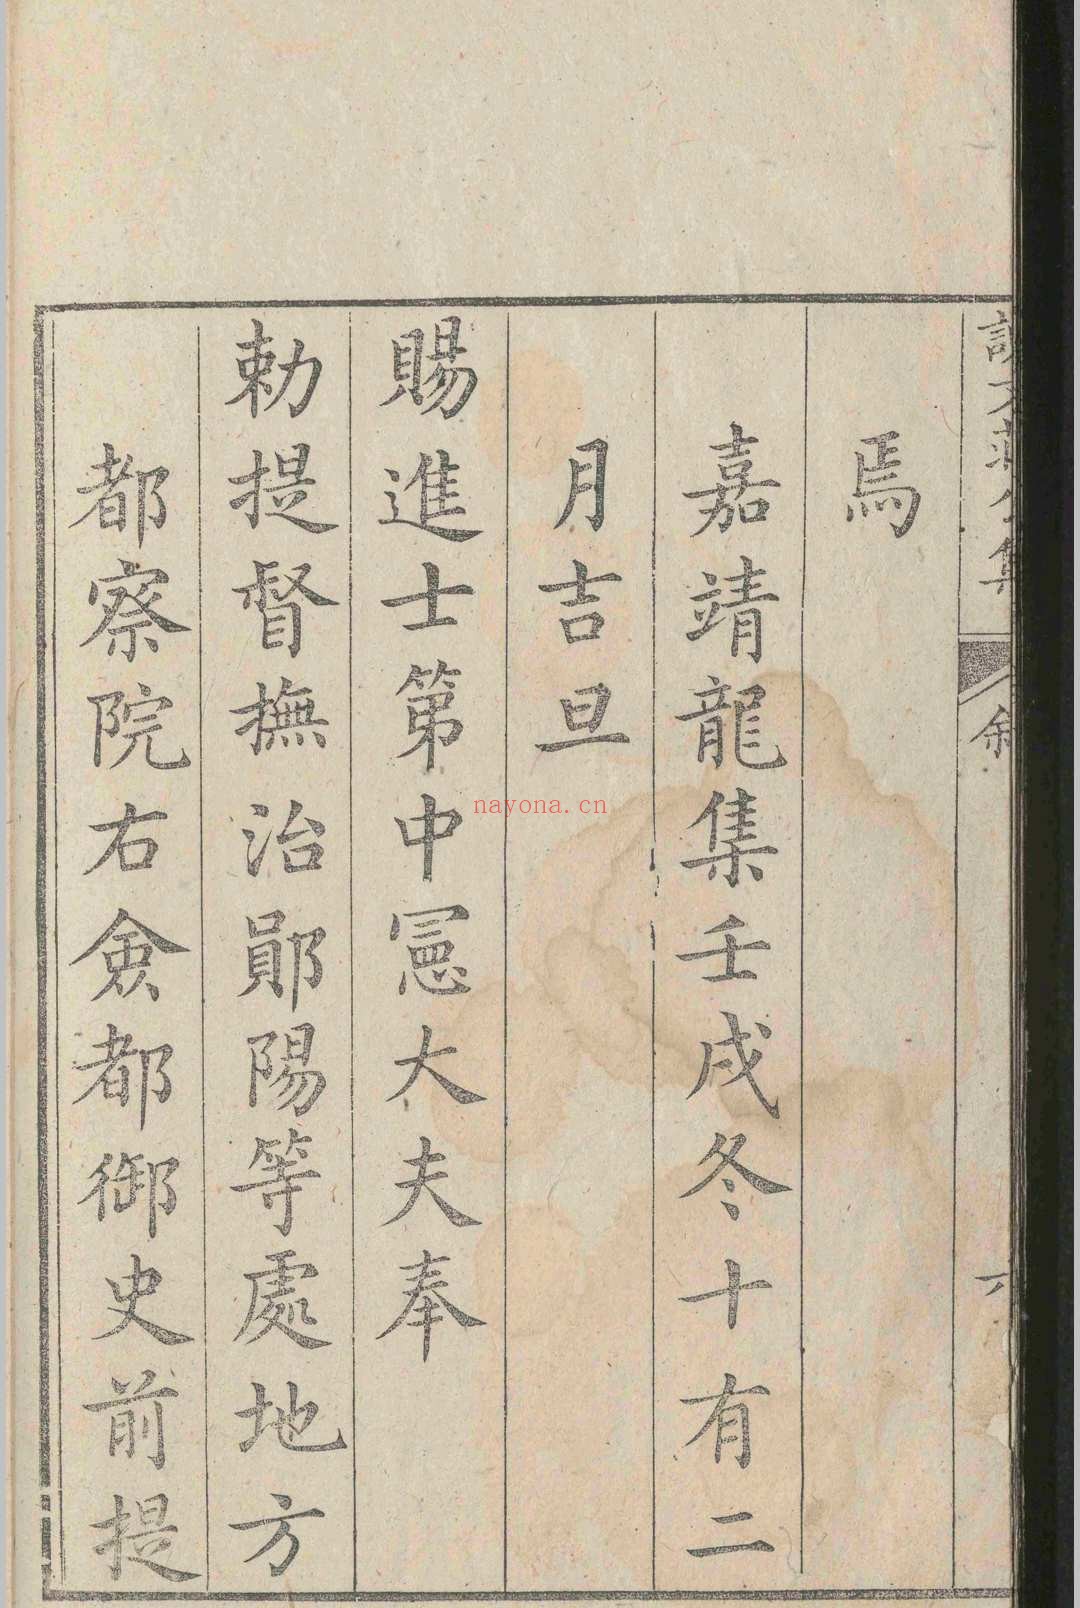 焉
嘉靖龍集壬戌冬十有二
月吉旦
賜進士第中憲大夫奉
勅提督撫治鄖陽等處地方
都察院右僉都御史前提
敘
nayona.cn